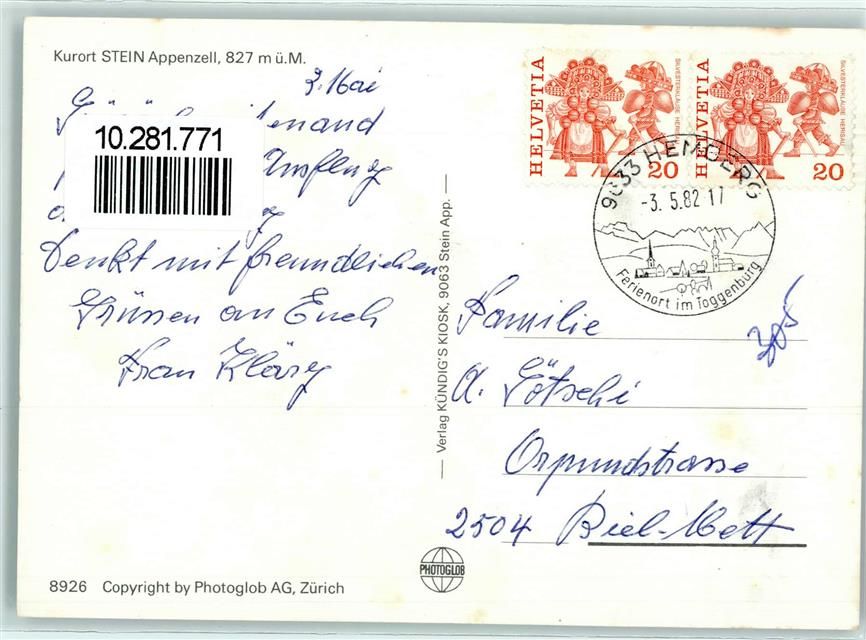 Kurort STEIN Appenzell, 827 m ü.M.
2. Mai
10.281.771
Ausflug
Denkt mit freundlichen
Grüssen an Euch
Frau Kläry
Verlag KÜNDIG'S KIOSK, 9063 Stein App.
HELVETIA
SILVESTERKLÄUSE HERISAU
20
HELVETIA
SILVESTERKLÄUSE HERISAU
20
9633 HEMBERG
-3.5.82 17
Ferienort im Toggenburg
Familie
A. Götschi
Orpundstrasse
2504 Biel-Mett
PHOTOGLOB
8926 Copyright by Photoglob AG, Zürich